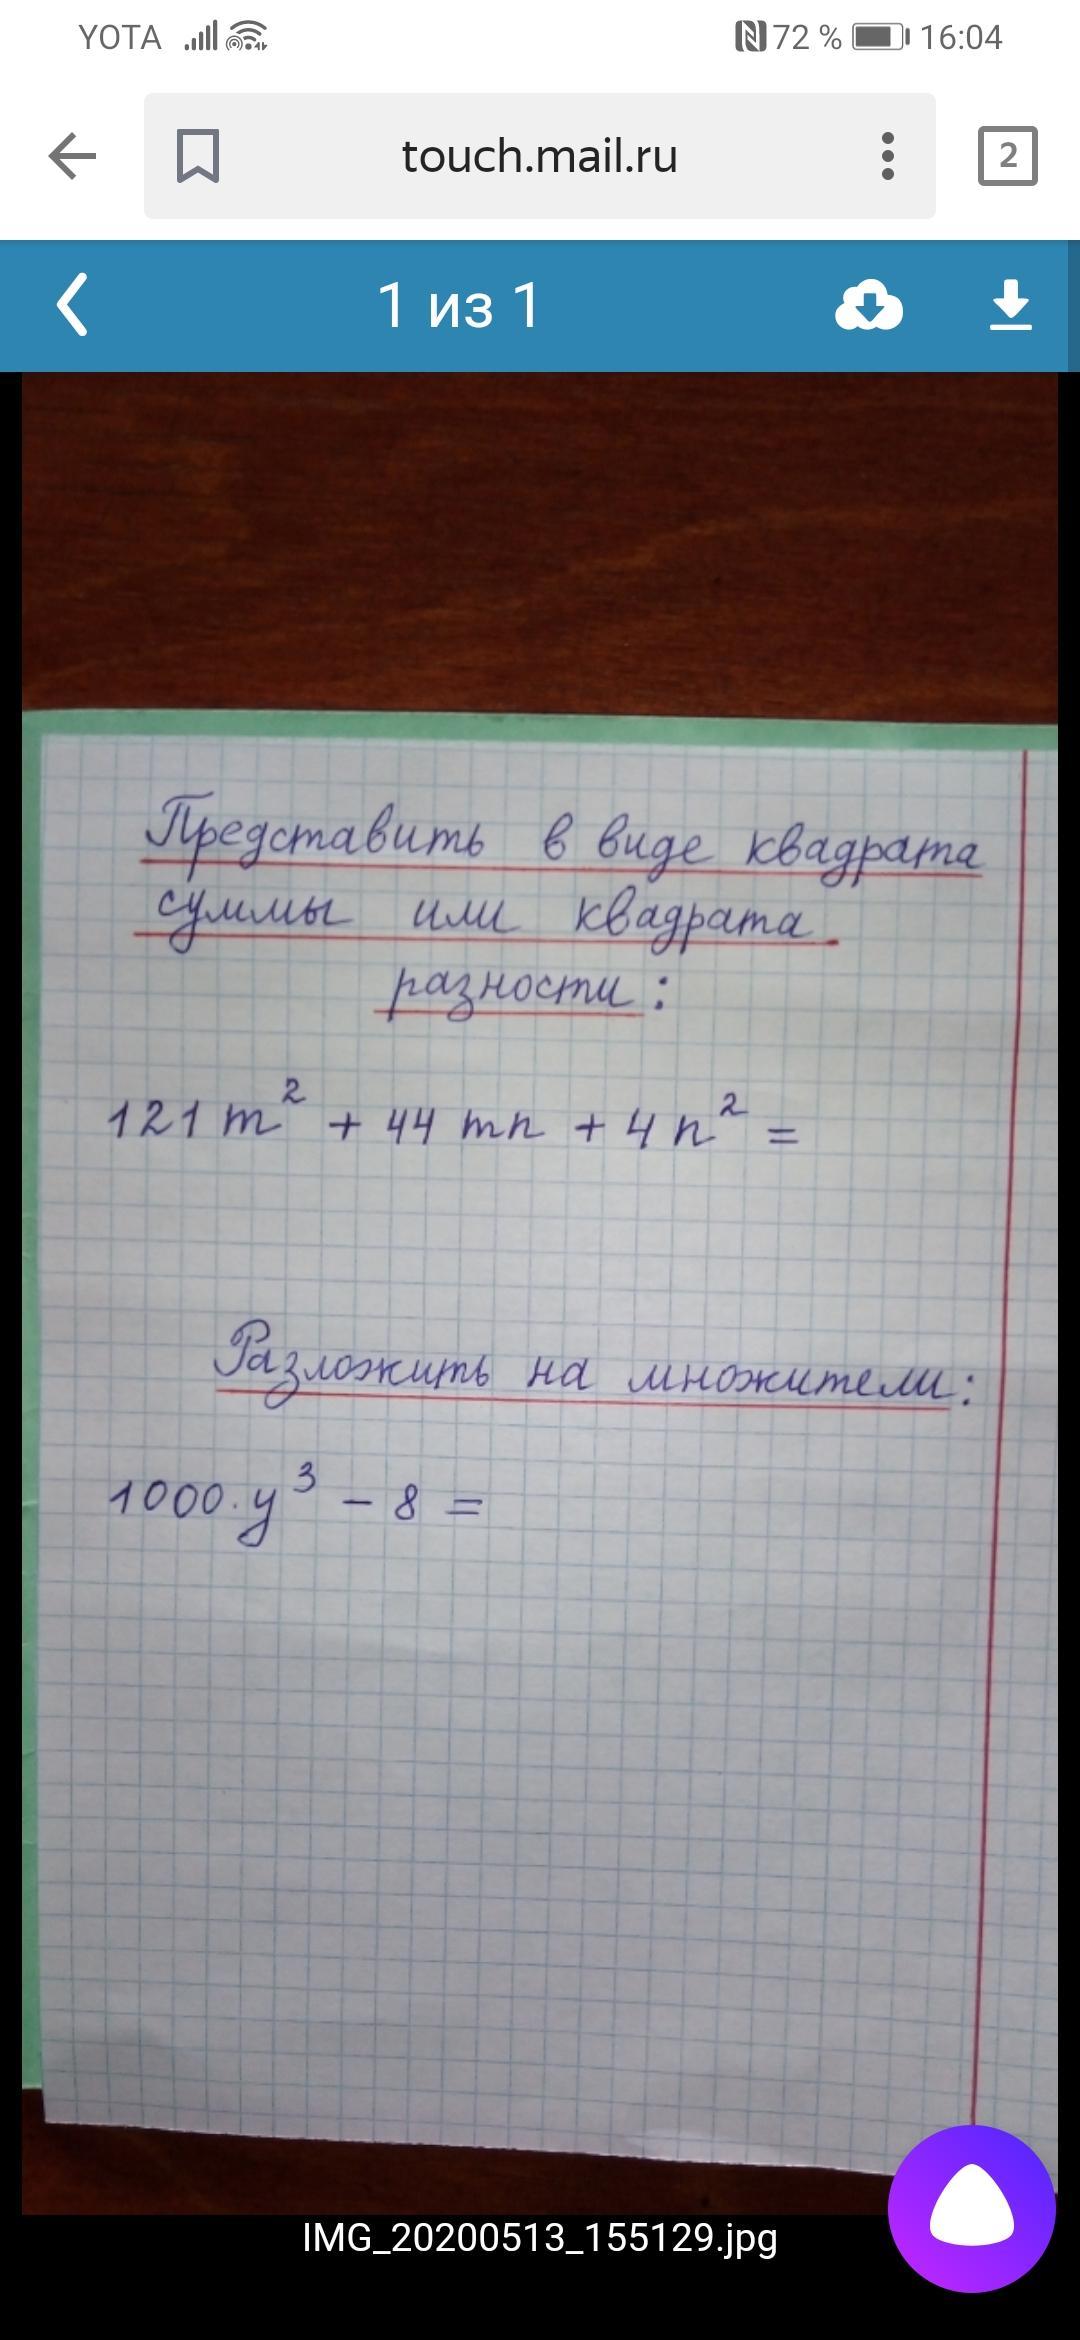 YOTA 72 % 16:04
touch.mail.ru 2
1 из 1
Представить в виде квадрата
суммы или квадрата
разности:
121 m² + 44 mn + 4 n² =
Разложить на множители:
1000·y³ - 8 =
IMG_20200513_155129.jpg